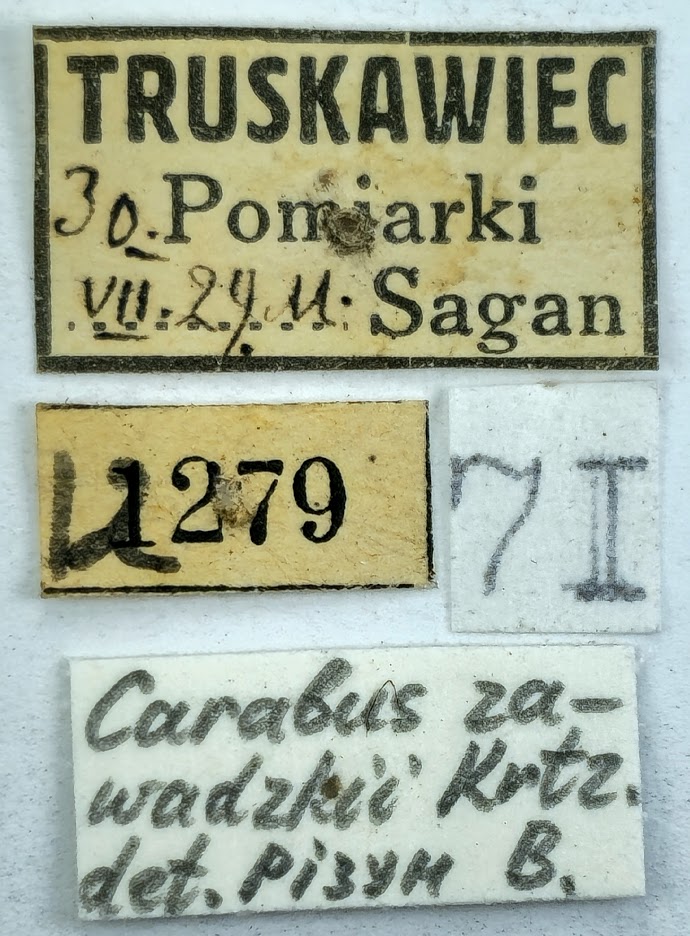 TRUSKAWIEC
30. Pomiarki
VII. 29. M. Sagan
1279
7 I
Carabus za-
wadzkii Krtz.
det. Різун В.